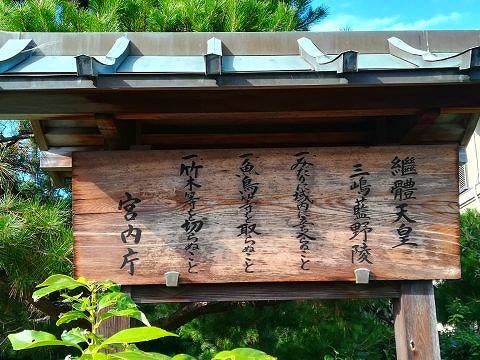 繼體天皇
三嶋藍野陵
一みだりに域内に立入らぬこと
一魚鳥等を取らぬこと
一竹木等を切らぬこと
宮内庁